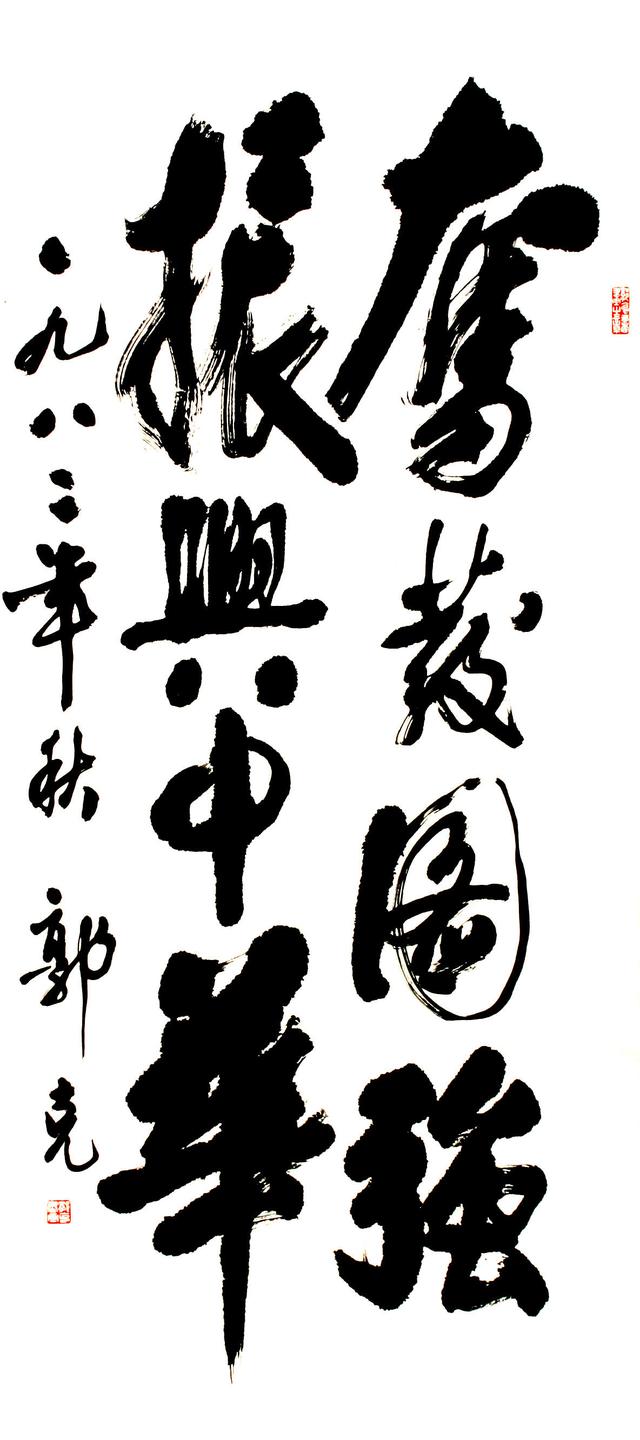 奮發圖強
振興中華
一九八二年秋 郭克